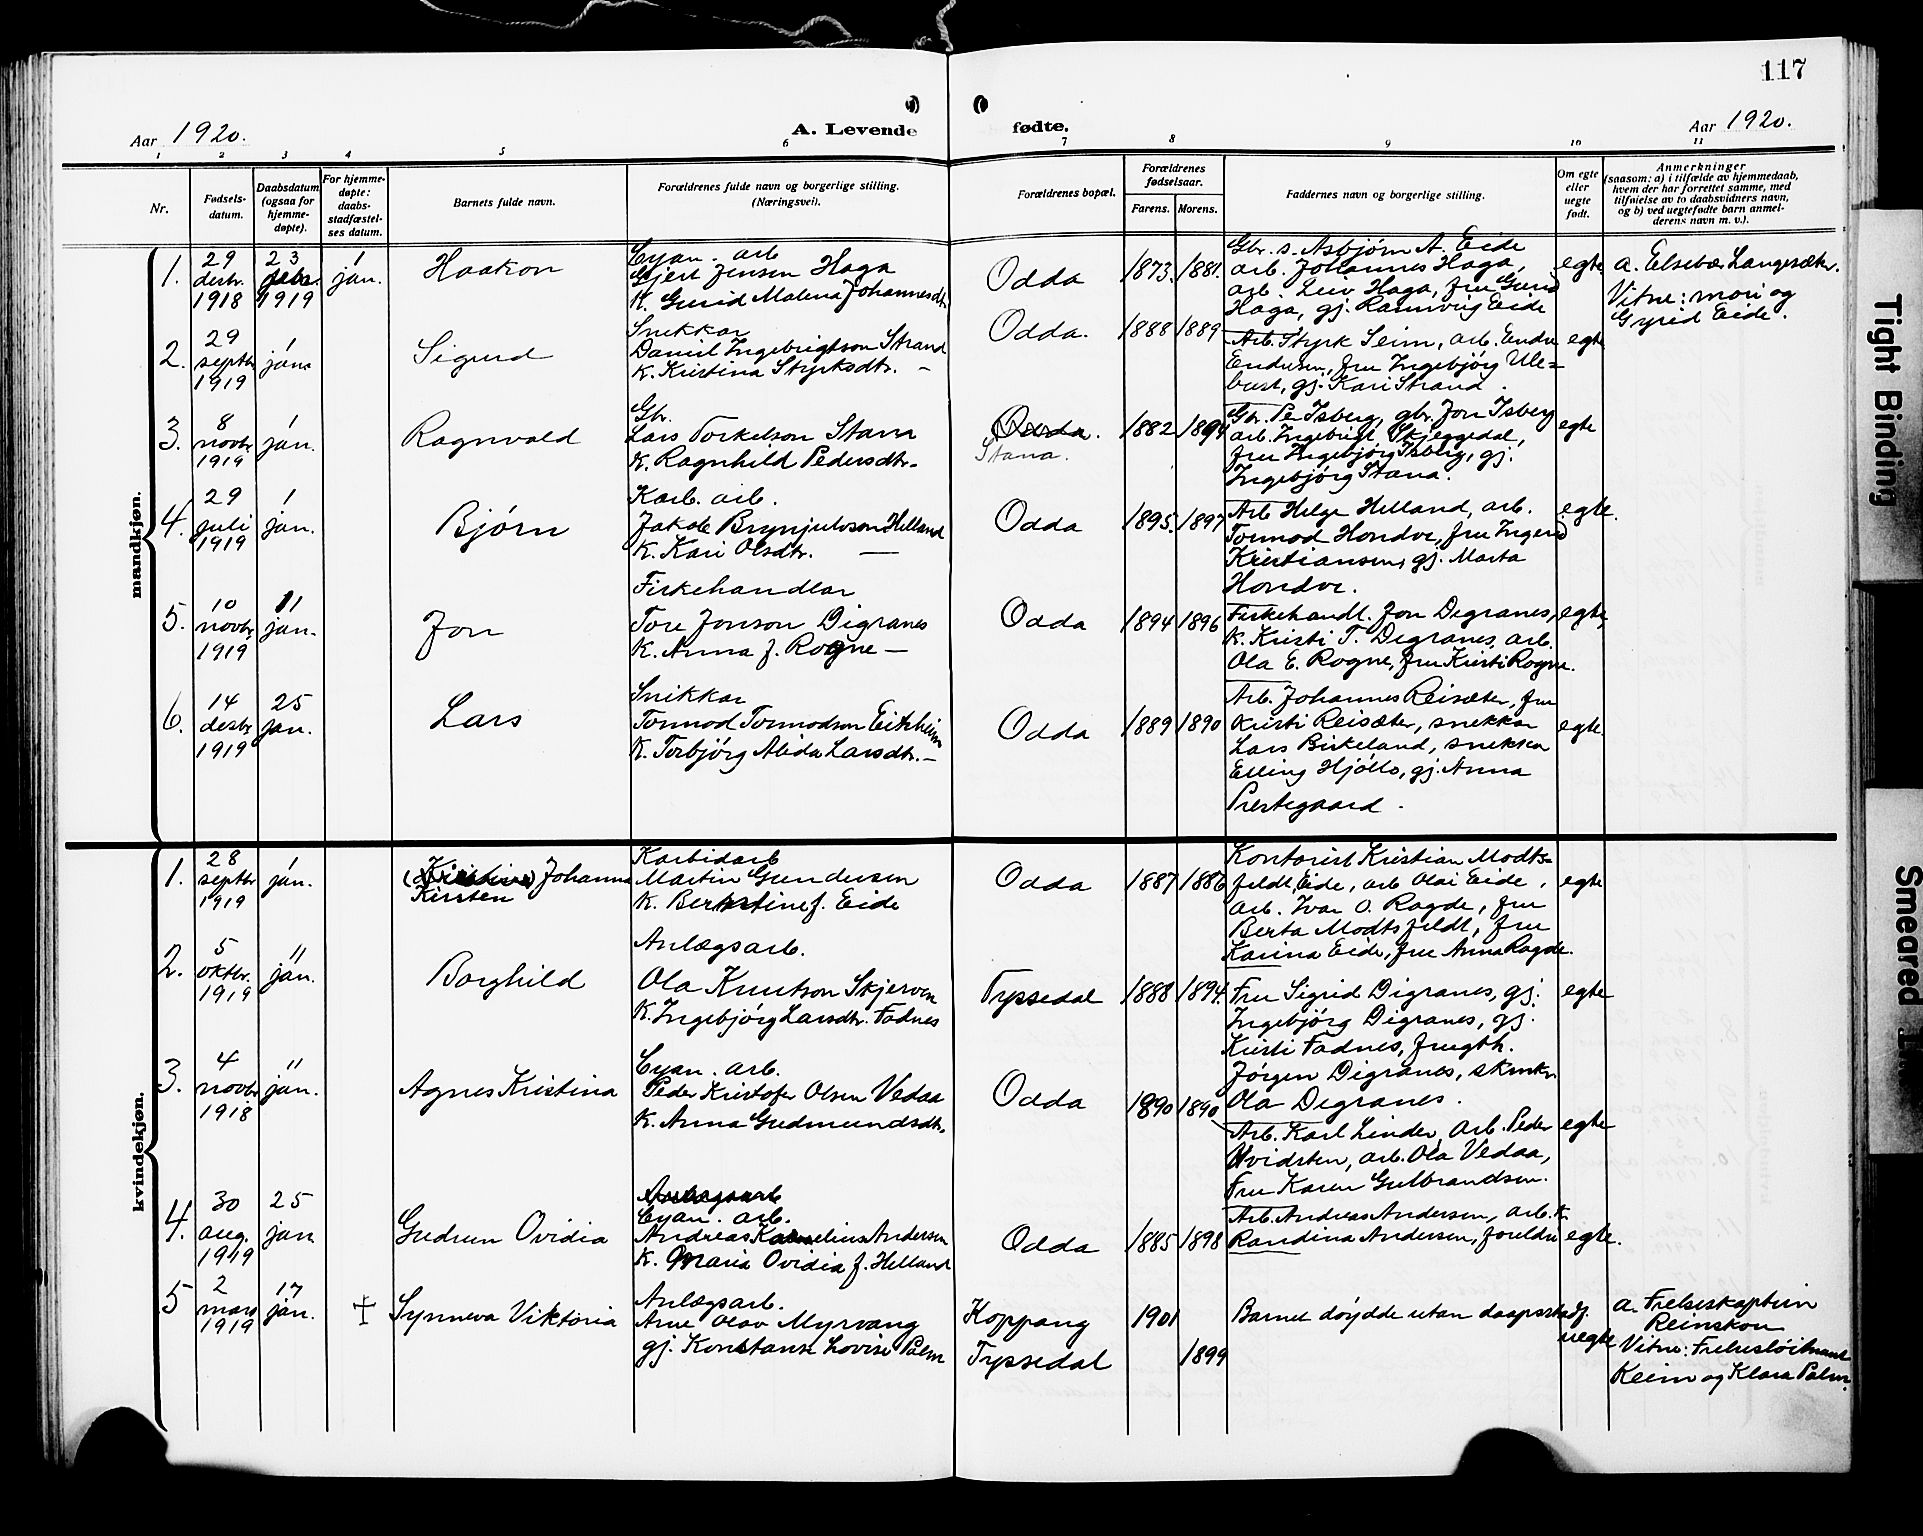 117
Aar 1920.
A. Levende
fødte.
Aar 1920.
1 2 3 4 5 6 7 8 9 10 11
Nr.
Fødsels-
datum.
Daabsdatum
(ogsaa for
hjemme-
døpte).
For hjemme-
døpte:
daabs-
stadfæstel-
ses datum.
Barnets fulde navn.
Forældrenes fulde navn og borgerlige stilling.
(Næringsvei).
Forældrenes bopæl.
Forældrenes
fødselsaar.
Farens. Morens.
Faddernes navn og borgerlige stilling.
Om egte
eller
uegte
født.
Anmerkninger
(saasom: a) i tilfælde av hjemmedaab,
hvem der har forrettet samme, med
tilføielse av to daabsvidners navn,
og b) ved uegtefødte barn anmel-
derens navn m. v.).
mandkjøn.
1.
29
desbr.
1918
23
1919
1
jan.
Haakon
Cyan. arb
Gjert Jensen Haga
K. Gurid Malena Johannesdtr.
Odda
1873. 1881.
Gbr. s. Asbjørn A. Eide
arb. Johannes Haga,
arb. Leiv Haga, fru Gurid
Haga, gj. Rannveig Eide
egte
a. Elsebæ Langesæter.
Vitne: mori og
Gyrid Eide.
2.
29
septbr
1919
1
jan.
Sigurd
Snikkar
Daniel Ingebrigtson Strand
K. Kristina Styrksdtr. -
Odda.
1888 1889
Arb. Styrk Seim, arb. Endre
Endresen, fru Ingebjörg Ule=
bust, gj. Kari Strand.
egte
3.
8
novbr.
1919
1
jan.
Ragnvald
Gbr.
Lars Torkelson Stana
K. Ragnhild Pedersdtr.
Odda.
Stana.
1882 1894
Gbr. Per Isberg, gbr. Jon Isberg
arb. Ingebrigt Skjeggedal,
fru Ingebjörg Isberg, gj.
Ingebjörg Stana.
egte
4.
29
juli
1919
1
jan.
Bjørn
Karb. arb.
Jakob Brynjulvson Helland
K. Kari Olsdtr. —
Odda
1895. 1897
Arb Helge Helland, arb.
Tormod Hondve, fru Ingerid
Kristiansen, gj. Marta
Hondve.
egte.
5.
10
novbr.
1919
11
jan.
Jon
Fiskehandlar
Tore Jonson Digranes
K. Anna f. Rogne —
Odda
1894 1896
Fiskehandl. Jon Digranes,
K. Kristi T. Digranes, arb.
Ola E. Rogne, fru Kristi Rogne.
egte
6.
14
desbr
1919
25
jan.
Lars
Snikkar
Tormod Tormodson Eitrheim
K. Torbjörg Alida Larsdtr. —
Odda
1889 1890
Arb. Johannes Reisæter, fru
Kristi Reisæter, snekkar
Lars Birkeland, snekker
Elling Hjöllo, gj. Anna
Prestegaard.
egte
kvindekjøn.
1.
28
septbr
1919
1
jan.
(Kristine) Johanna
Kirsten
Karbidarb
Martin Gundersen
K. Berntine f. Eide
Odda
1887 1886
Kontorist Kristian Modts=
feldt, Eide, arb Olai Eide,
arb. Ivar O. Ragde, fru
Berta Modtsfeldt, fru
Karina Eide, fru Anna Ragde.
egte
2.
5
oktbr.
1919
11
jan.
Borghild
Anlægsarb.
Ola Knutson Skjerven
K. Ingebjörg Larsdtr. Fadnes
Tyssedal
1888 1894.
Fru Sigrid Digranes, gj.
Ingebjörg Digranes, gj.
Kristi Fadnes, frugth.
Jörgen Digranes, skinkr.
Ola Digranes.
egte
3.
4
novbr
1918
11
jan.
Agnes Kristina
Cyan. arb.
Peder Kristofer Olsen Vedaa
K. Anna Gudmundsdtr.
Odda
1890 1890
Arb. Karl Linder, arb. Peder
Hvidsten, arb. Ola Vedaa,
Fru Karen Gulbrandsen.
egte
4.
30
aug.
1919
25
jan
Gudrun Ovidia
Anlægsarb
Cyan. arb.
Andreas Kornelius Andersen
K. Maria Ovidia f. Helland
Odda
1885 1898
Arb. Andreas Andersen, arb. K.
Randina Andersen, foreldre
egte.
5
2
mars
1919
17
jan.
Synneva Viktoria
Anlægsarb.
Arne Olav Myrvang
gj. Konstanse Lovise Palm
Koppang
Tyssedal
1901
1899
Barnet döydde utan daapsstadf.
uegte
a. Frelseskaptein
Reinskou
Vitne: Frelseslöitnant
Reim og Klara Palm.
Tight Binding
Smeared